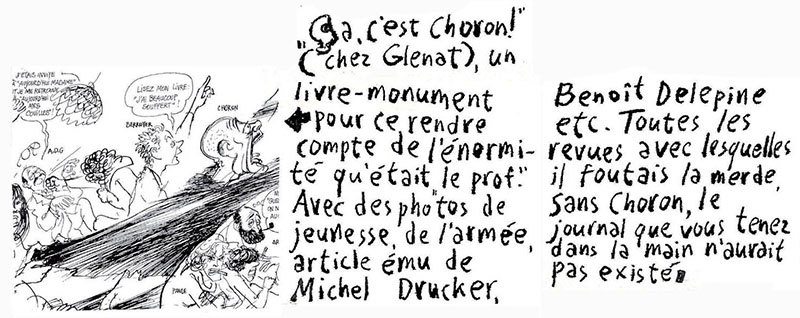 J'ETAIS INVITÉ
"AUJOURD'HUI MADAME"
JE ME RETROUVE
AUJOURD'HUI
COUILLES!"
A.D.G
BERROYER
LISEZ MON LIVRE
"J'AI BEAUCOUP
SOUFFERT"
CHORON
"Ça, c'est Choron!"
(chez Glenat), un
livre-monument
pour ce rendre
compte de l'énormi-
té qu'était "le prof."
Avec des photos de
jeunesse, de l'armée,
article ému de
Michel Drucker,
Benoît Delepine
etc. Toutes les
revues avec lesquelles
il foutais la merde.
Sans Choron, le
journal que vous tenez
dans la main n'aurait
pas existé